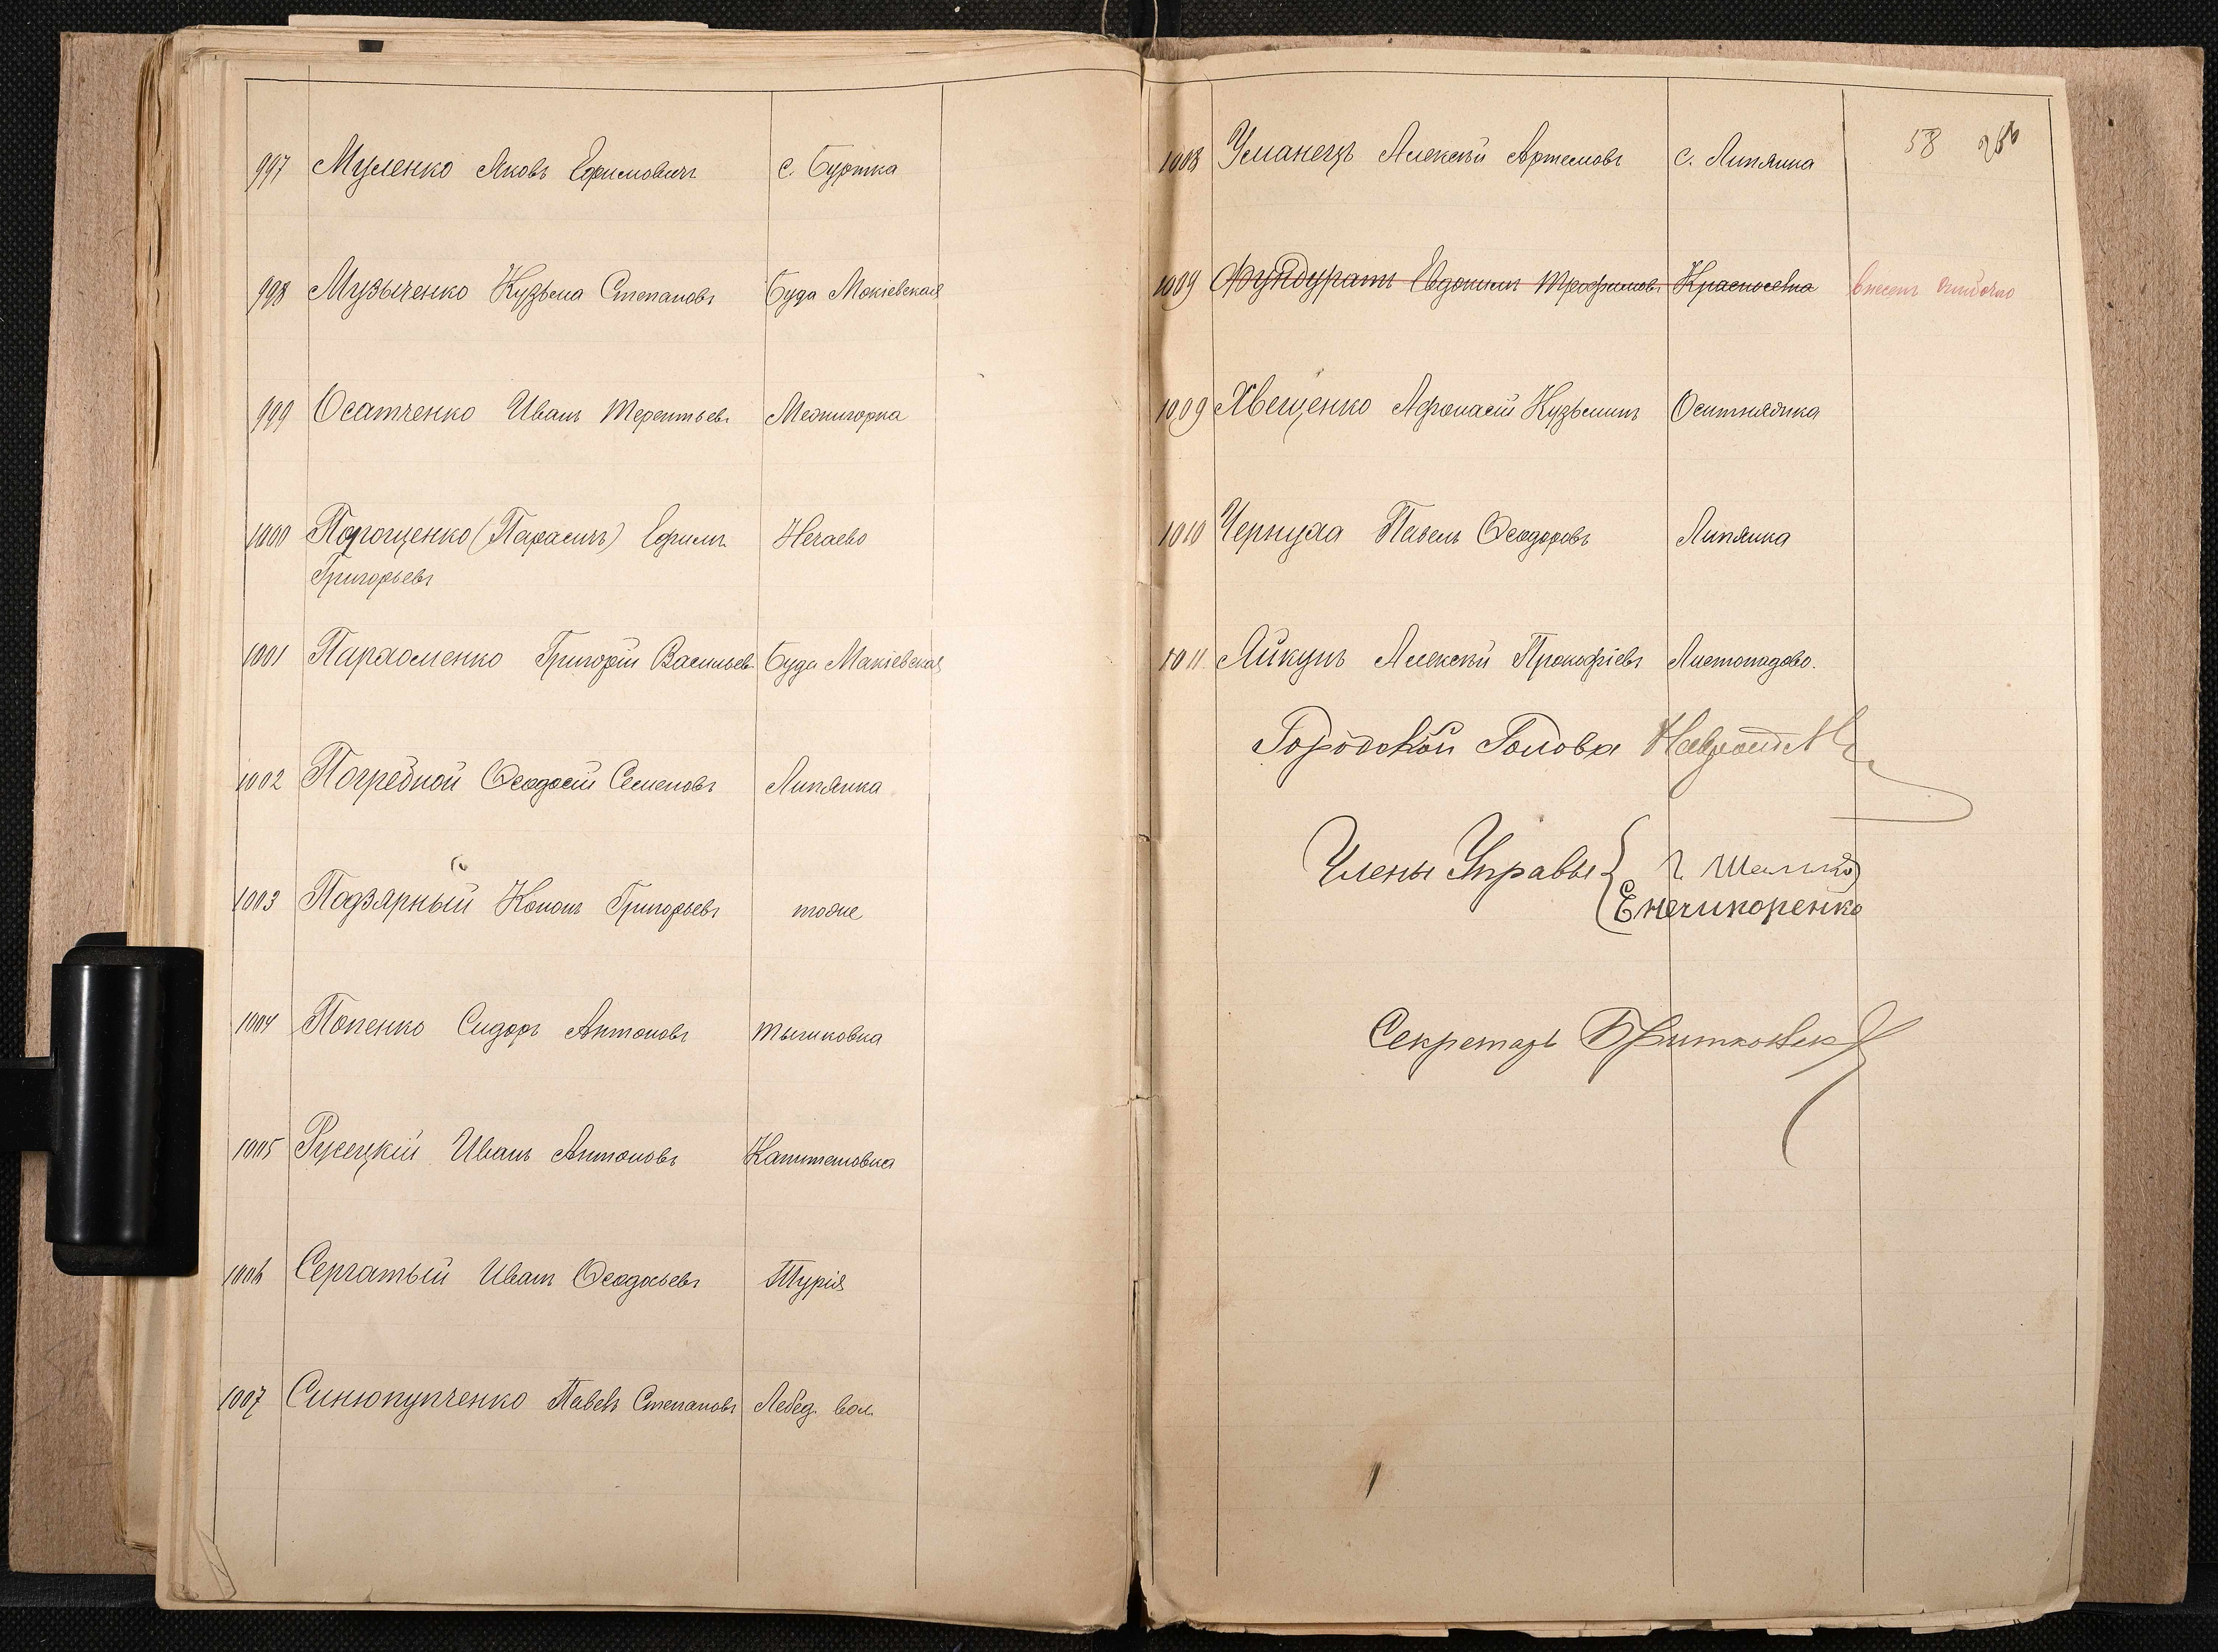 997 Муленко Яковъ Ефимовичъ с. Буртка
998 Музыченко Кузьма Степановъ Буда Макіевская
999 Осатченко Иванъ Терентьевъ Межигорка
1000 Порощенко (Парасичъ) Ефимъ Нечаево
Григорьевъ
1001 Пархоменко Григорій Васильевъ Буда Макіевская
1002 Погребной Ѳеодосій Семеновъ Липянка
1003 Подзярный Кононъ Григорьевъ тоже
1004 Попенко Сидоръ Антоновъ Тышковка
1005 Русецкій Иванъ Антоновъ Капитановка
1006 Сергатый Иванъ Ѳеодосьевъ Турія
1007 Синюпупченко Павелъ Степановъ Лебед. вол.
58
1008 Уманецъ Алексѣй Артемовъ с. Липянка
1009 Фундуратъ Евдокимъ Трофимовъ Красноселка внесенъ ошибочно
1009 Хвещенко Афонасій Кузьминъ Оситняжка
1010 Чернуха Павелъ Ѳеодоровъ Липянка
1011. Яйкунъ Алексѣй Прокофіевъ Листопадово.
Городской Голова
Члены Управы
Енечикоренко
Секретарь